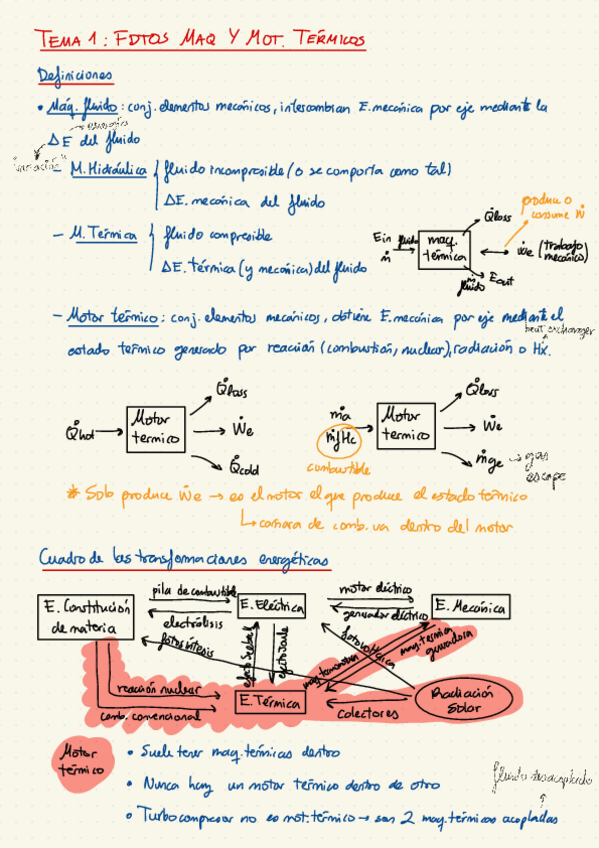 TEMA 1: FDTOS MAQ Y MOT. TÉRMICOS
Definiciones
• Máq. fluido: conj. elementos mecánicos, intercambian E. mecánica por eje mediante la
ΔE del fluido
"variación"
- M. Hidráulica { fluido incompresible (o se comporta como tal)
ΔE. mecánica del fluido
- M. Térmica { fluido compresible
ΔE. térmica (y mecánica) del fluido
produce o
consume Ẇ
Q̇loss
Ein fluido
ṁ
maq.
térmica
Ẇe (trabajo
mecánico)
ṁ
fluido
Eout
- Motor térmico: conj. elementos mecánicos, obtiene E. mecánica por eje mediante el
heat exchanger
estado termico generado por reacción (combustión, nuclear), radiación o Hx.
Q̇hot
Motor
termico
Q̇loss
Ẇe
Q̇cold
ṁa
ṁfHc
combustible
Motor
termico
Q̇loss
Ẇe
ṁge → gas
escape
* Solo produce Ẇe → es el motor el que produce el estado térmico
↳ camara de comb. va dentro del motor
Cuadro de las transformaciones energéticas
E. Constitución
de materia
pila de combustible
electrólisis
fotosíntesis
E. Eléctrica
motor eléctrico
generador eléctrico
E. Mecánica
fotovoltaica
maq. termica
generadora
efecto Joule
reacción nuclear
comb. convencional
E. Térmica
colectores
Radiación
Solar
Motor
térmico
• Suele tener maq. térmicas dentro
• Nunca hay un motor térmico dentro de otro
fluido desacoplado
• Turbocompresor no es mot. térmico → son 2 maq. térmicas acopladas